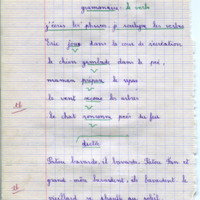 grammaire : le verbe
j'écris les phrases, je souligne les verbes
Eric joue dans la cour de récréation
le chien gambade dans le pré,
maman prépare le repas
le vent secoue les arbres
16
le chat ronronne près du feu
dictée
Pierre bavarde, il bavarde. Pierre
et
grand-mère bavardent, ils bavardent. le
16
vieillard se chauffe au soleil